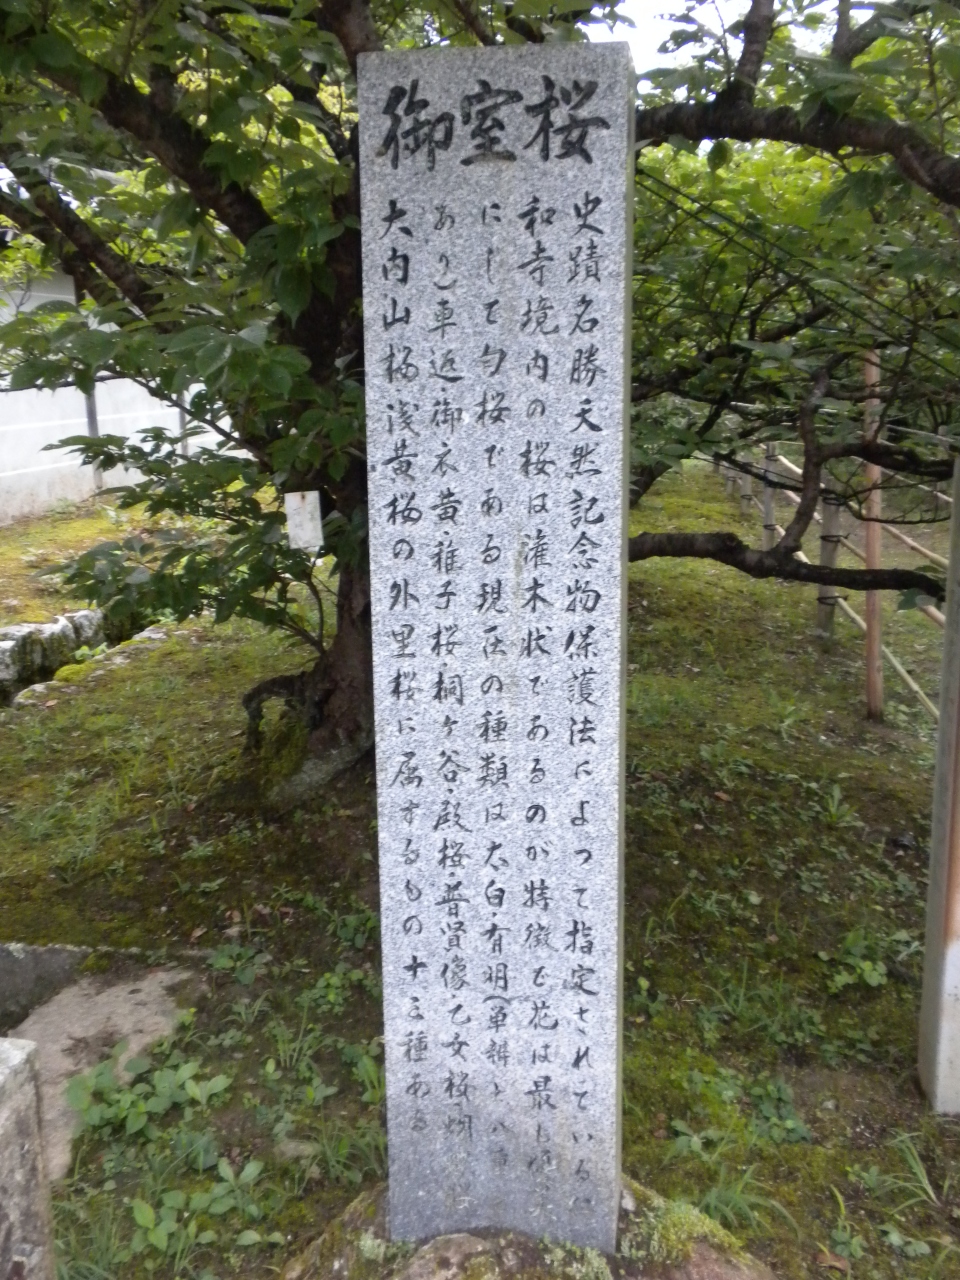 御室桜
史蹟名勝天然記念物保護法によつて指定されている仁
和寺境内の桜は潅木状であるのが特徴で花は最も
にして匂桜である現在の種類は大白・有明(単辨と八重
あり)車返御衣黄・稚子桜・桐ヶ谷・殿桜・普賢像乙女桜
大内山桜浅黄桜の外里桜に属するもの十三種ある